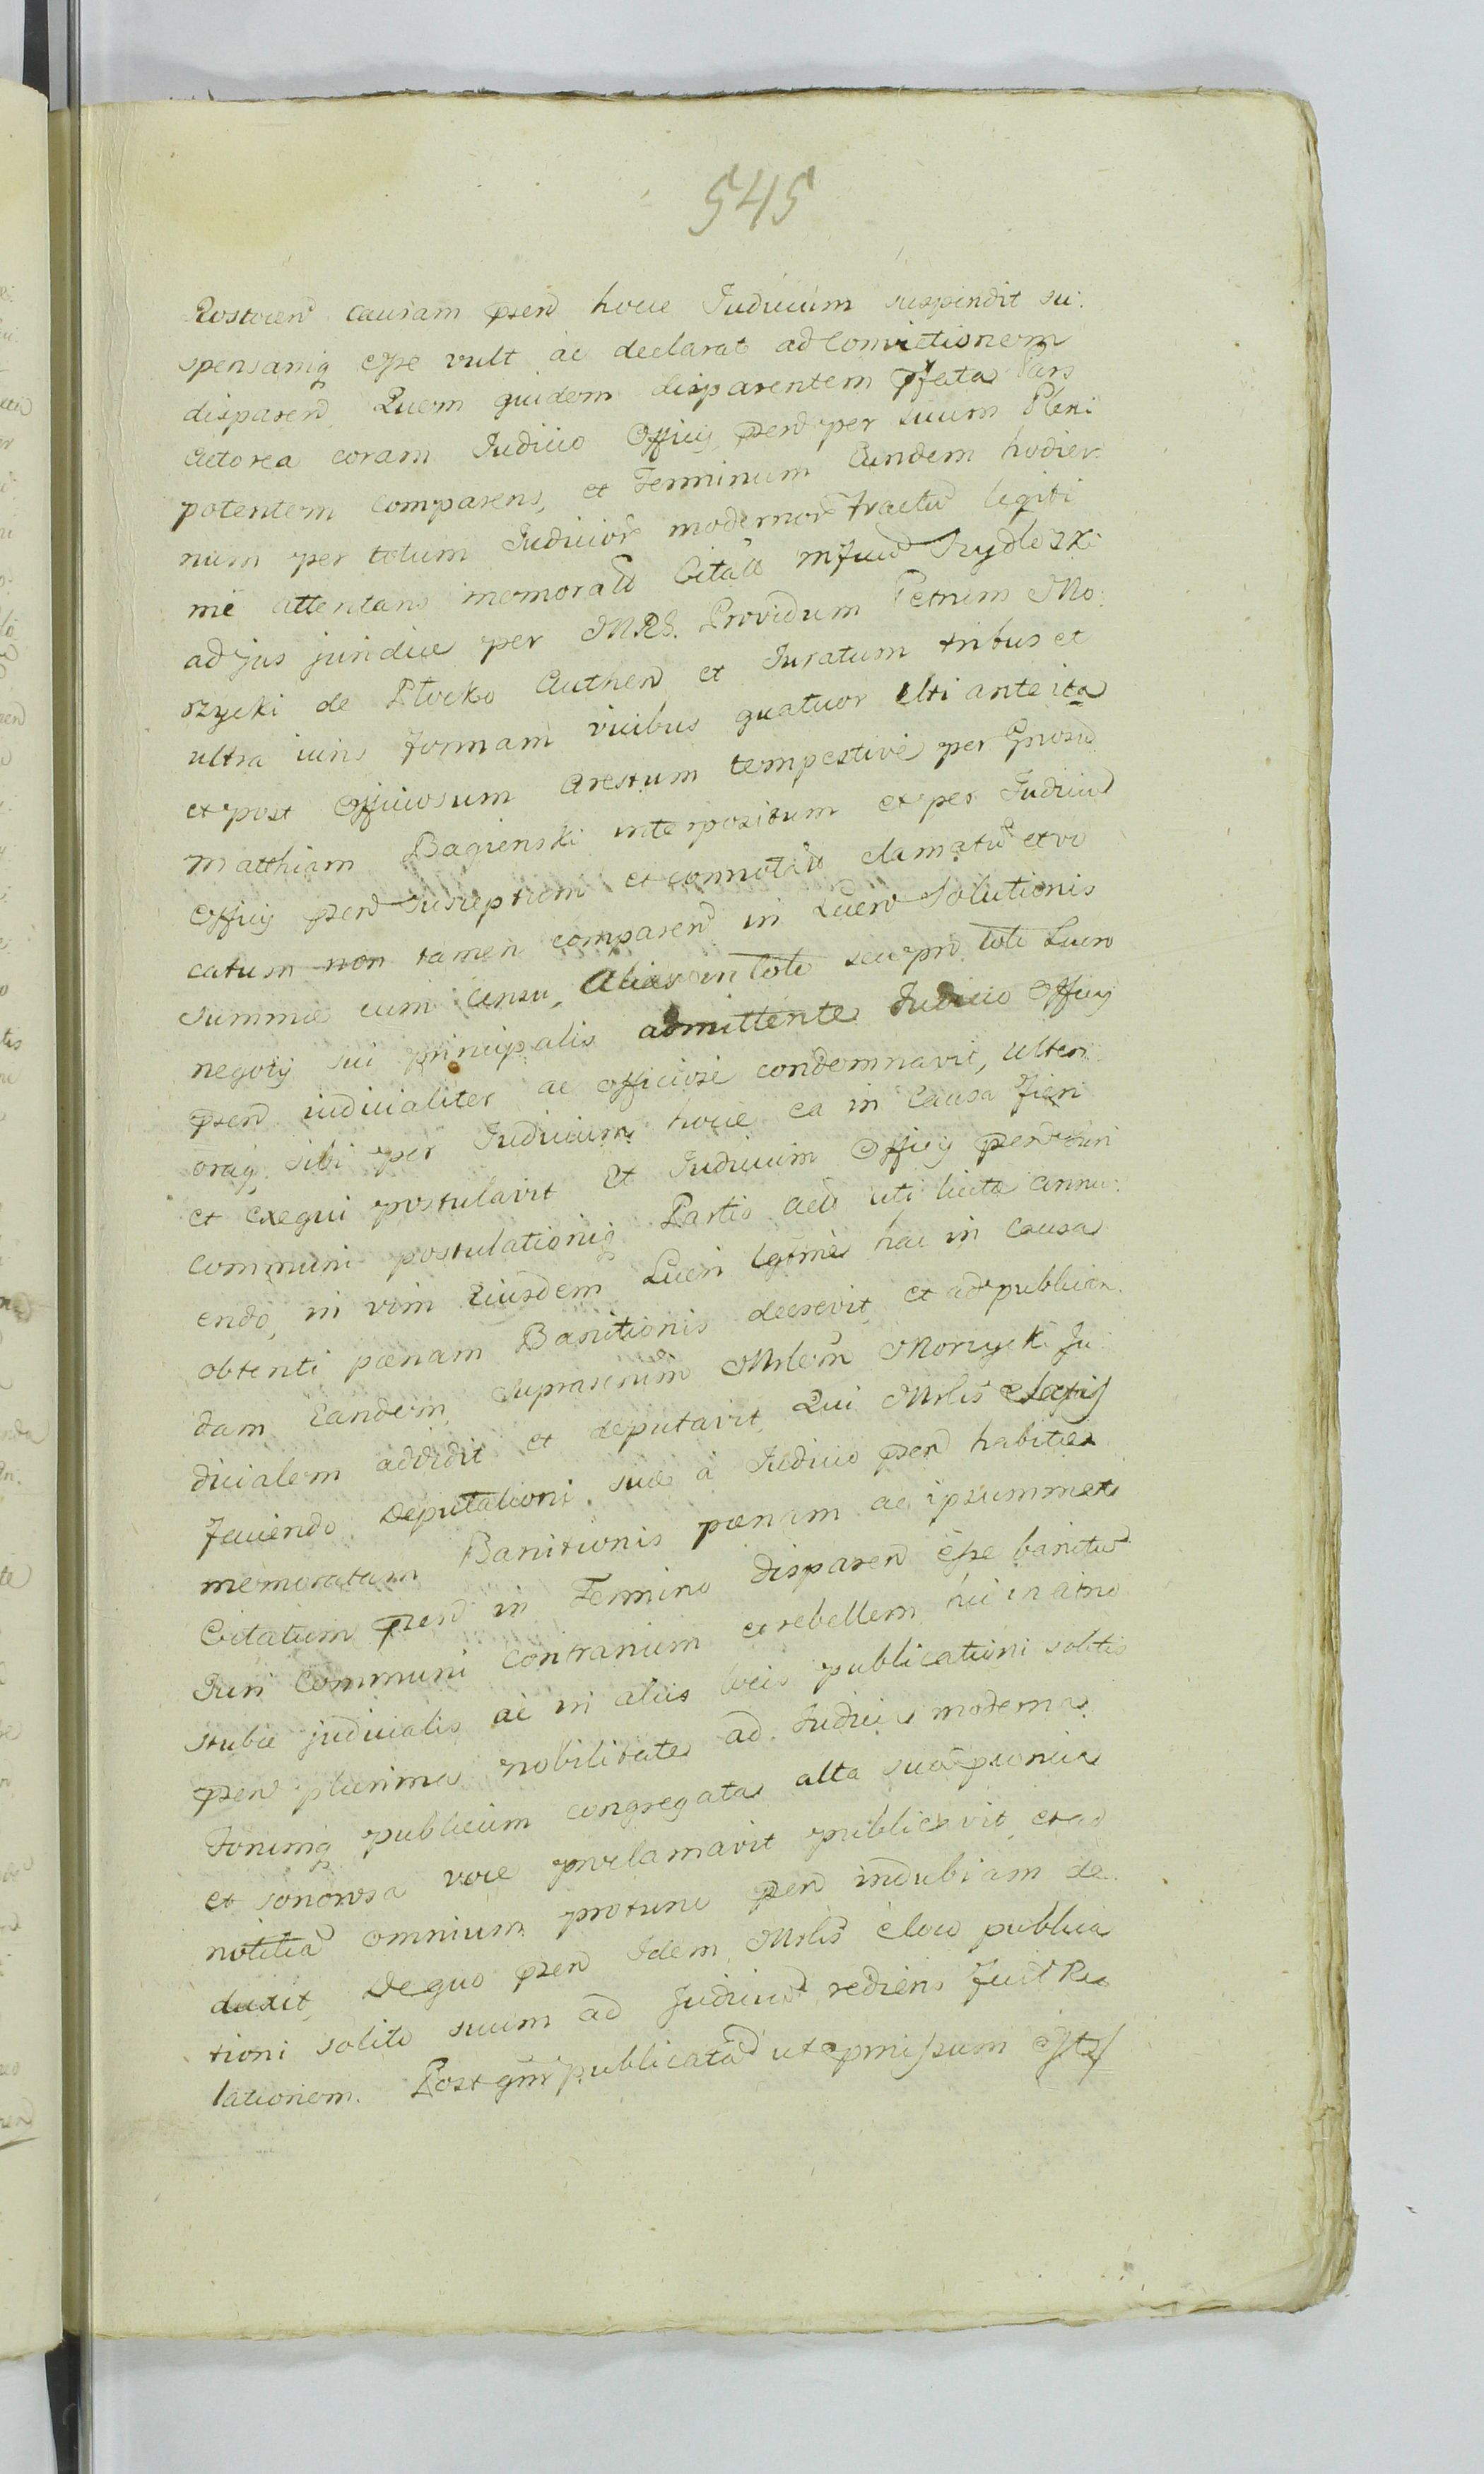 545
causam psen hocce Judicium suspendit su:
spensamq esse vult ac declarat ad Convictionem
disparen Quem quidem disparentem pfata Pars
Actorea coram Judicio Officij psen per suum Pleni
potentem comparens, et Terminum Eundem hodier
num per totum Judicior modernor tractu legiti
me attentans memorato Citato Mfico Szydłoski
ad jus juridice per MRS. Providum Petrum Mo:
rzycki de Płocko Authen et Juratum tribus et
ultra iuris formam vicibus quatuor ante ita
et post Officiosum Arestum tempestive per Gnosu
Matthiam Bagienski interpositum et per Judiciu
Officij psen susceptum et connotato clamatu et vo
catum non tamen comparen in Lucro Solutionis
Summae cum Censu, Alias in toto seu pro toto Lucro
negotij sui principalis admittente Judicio Officij
psen judicialiter ac officiose condemnavit, Ulteri
oraq sibi per Judicium hocce ea in Causa fieri
et exequi postulavit Et Judicium Officij psen Juri
Communi postulationiq Partis Acto uti licite annu:
endo, in vim Eiusdem Lucri lgtime hac in Causa
obtenti paenam Banitionis decrevit, et ad publican
dam Eandem suprascrium Mrlem Morzycki Ju
dicialem addidit et deputavit, Qui Mrlis
faciendo Deputationi suae a Judicio psen habitae
memoratam Banitionis paenam ac ipsummet
Citatum psen in Termino disparen esse banitu
Juri Communi contrarium et rebellem hic in atrio
stubae judicialis ac in aliis locis publicationi solitis
psen plurima nobilitate ad Judicia moderna
Forumq publicum congregata alta sua
et sonorosa voce proclamavit publicavit, et ad
notitia omnium protunc psen indubiam de
duxit, De quo psen Idem Mrlis e loco publica
tioni solito suum ad Judiciu rediens fecit Re
lationem. Post qnr publicata ut pmissum est